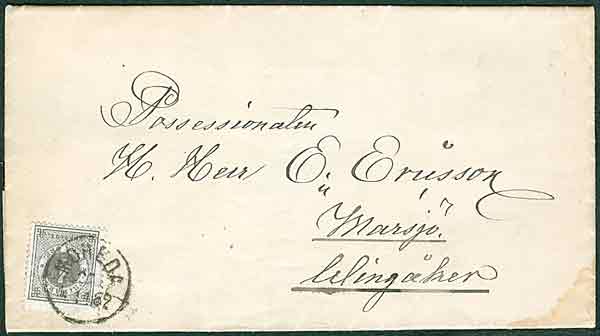 Possessionaten
H. Herr E. Ericsson
i
Marsjö.
Wingåker